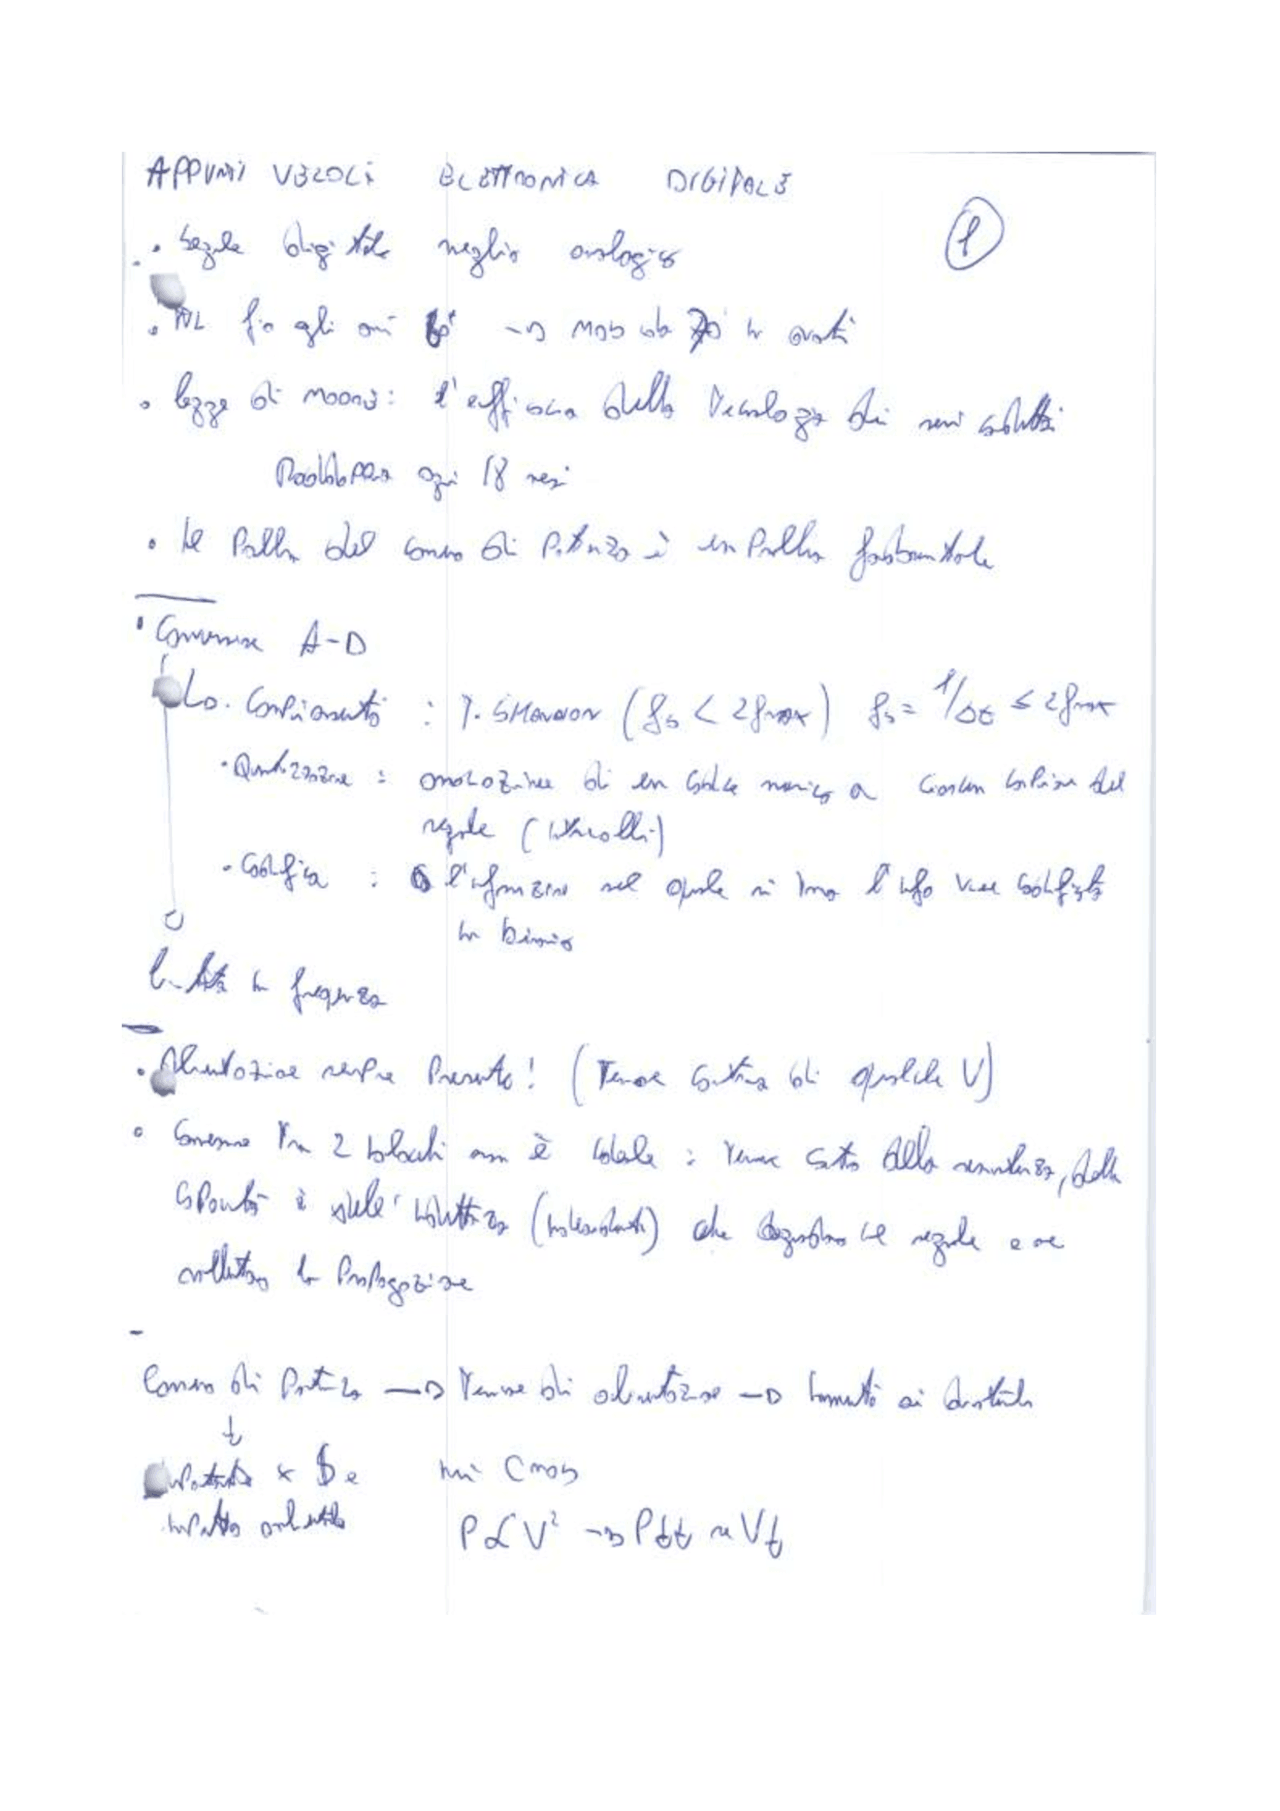 APPUNTI VELOCI ELETTRONICA DIGITALE
1
• Segnale digitale meglio analogico
• fino agli anni 60 → MOS da 70 in avanti
• legge di Moore: l'efficienza della Tecnologia dei semiconduttori
Raddoppia ogni 18 mesi
• Il Problema del consumo di Potenza è un Problema fondamentale
• Conversione A-D
Campionamento : T. SHANNON (fs < 2fmax) fs = 1/Δt ≤ 2fmax
• Quantizzazione : di un codice numerico a ciascun campione del
segnale (intervalli)
• Codifica : l'informazione nel quale si trova l'info viene codificata
in binario
limitata in frequenza
• Alimentazione sempre Presente! (Tensione continua di qualche V)
• Connessione tra 2 blocchi non è ideale : tenere conto della resistenza, della
capacità e dell'induttanza che degradano il segnale e ne
rallentano la Propagazione
Consumo di Potenza → Tensione di alimentazione →
↓
importante x $ e nei CMOS
impatto ambientale P ∝ V² → P↓↓ se V↓